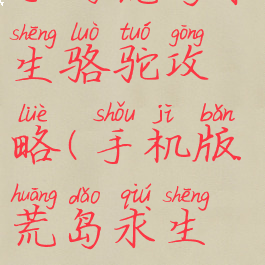 shēng luò tuó gōng
生骆驼攻
lüè shǒu jī bǎn
略(手机版
huāng dǎo qiú shēng
荒岛求生